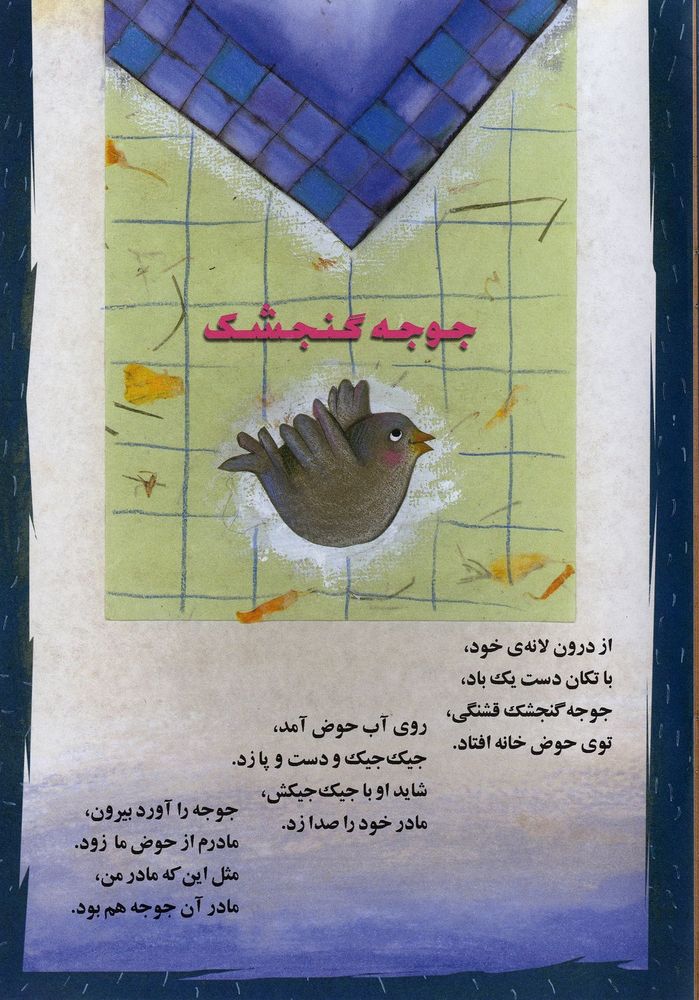 جوجه گنجشک
از درون لانه‌ی خود،
با تکان دست یک باد،
جوجه گنجشک قشنگی،
توی حوض خانه افتاد.
روی آب حوض آمد،
جیک‌جیک و دست و پا زد.
شاید او با جیک‌جیکش،
مادر خود را صدا زد.
جوجه را آورد بیرون،
مادرم از حوض ما زود.
مثل این که مادر من،
مادر آن جوجه هم بود.